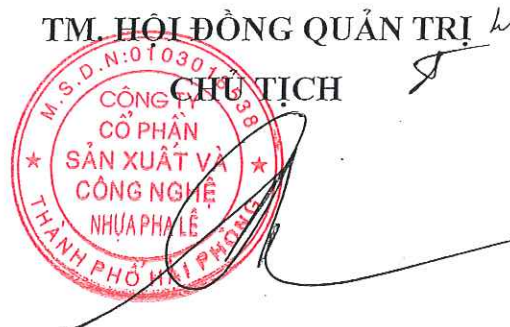 TM. HỘI ĐỒNG QUẢN TRỊ
CHỦ TỊCH
M.S.D.N:
CÔNG TY
CỔ PHẦN
SẢN XUẤT VÀ
CÔNG NGHỆ
NHỰA PHA LÊ
THÀNH PHỐ HẢI PHÒNG